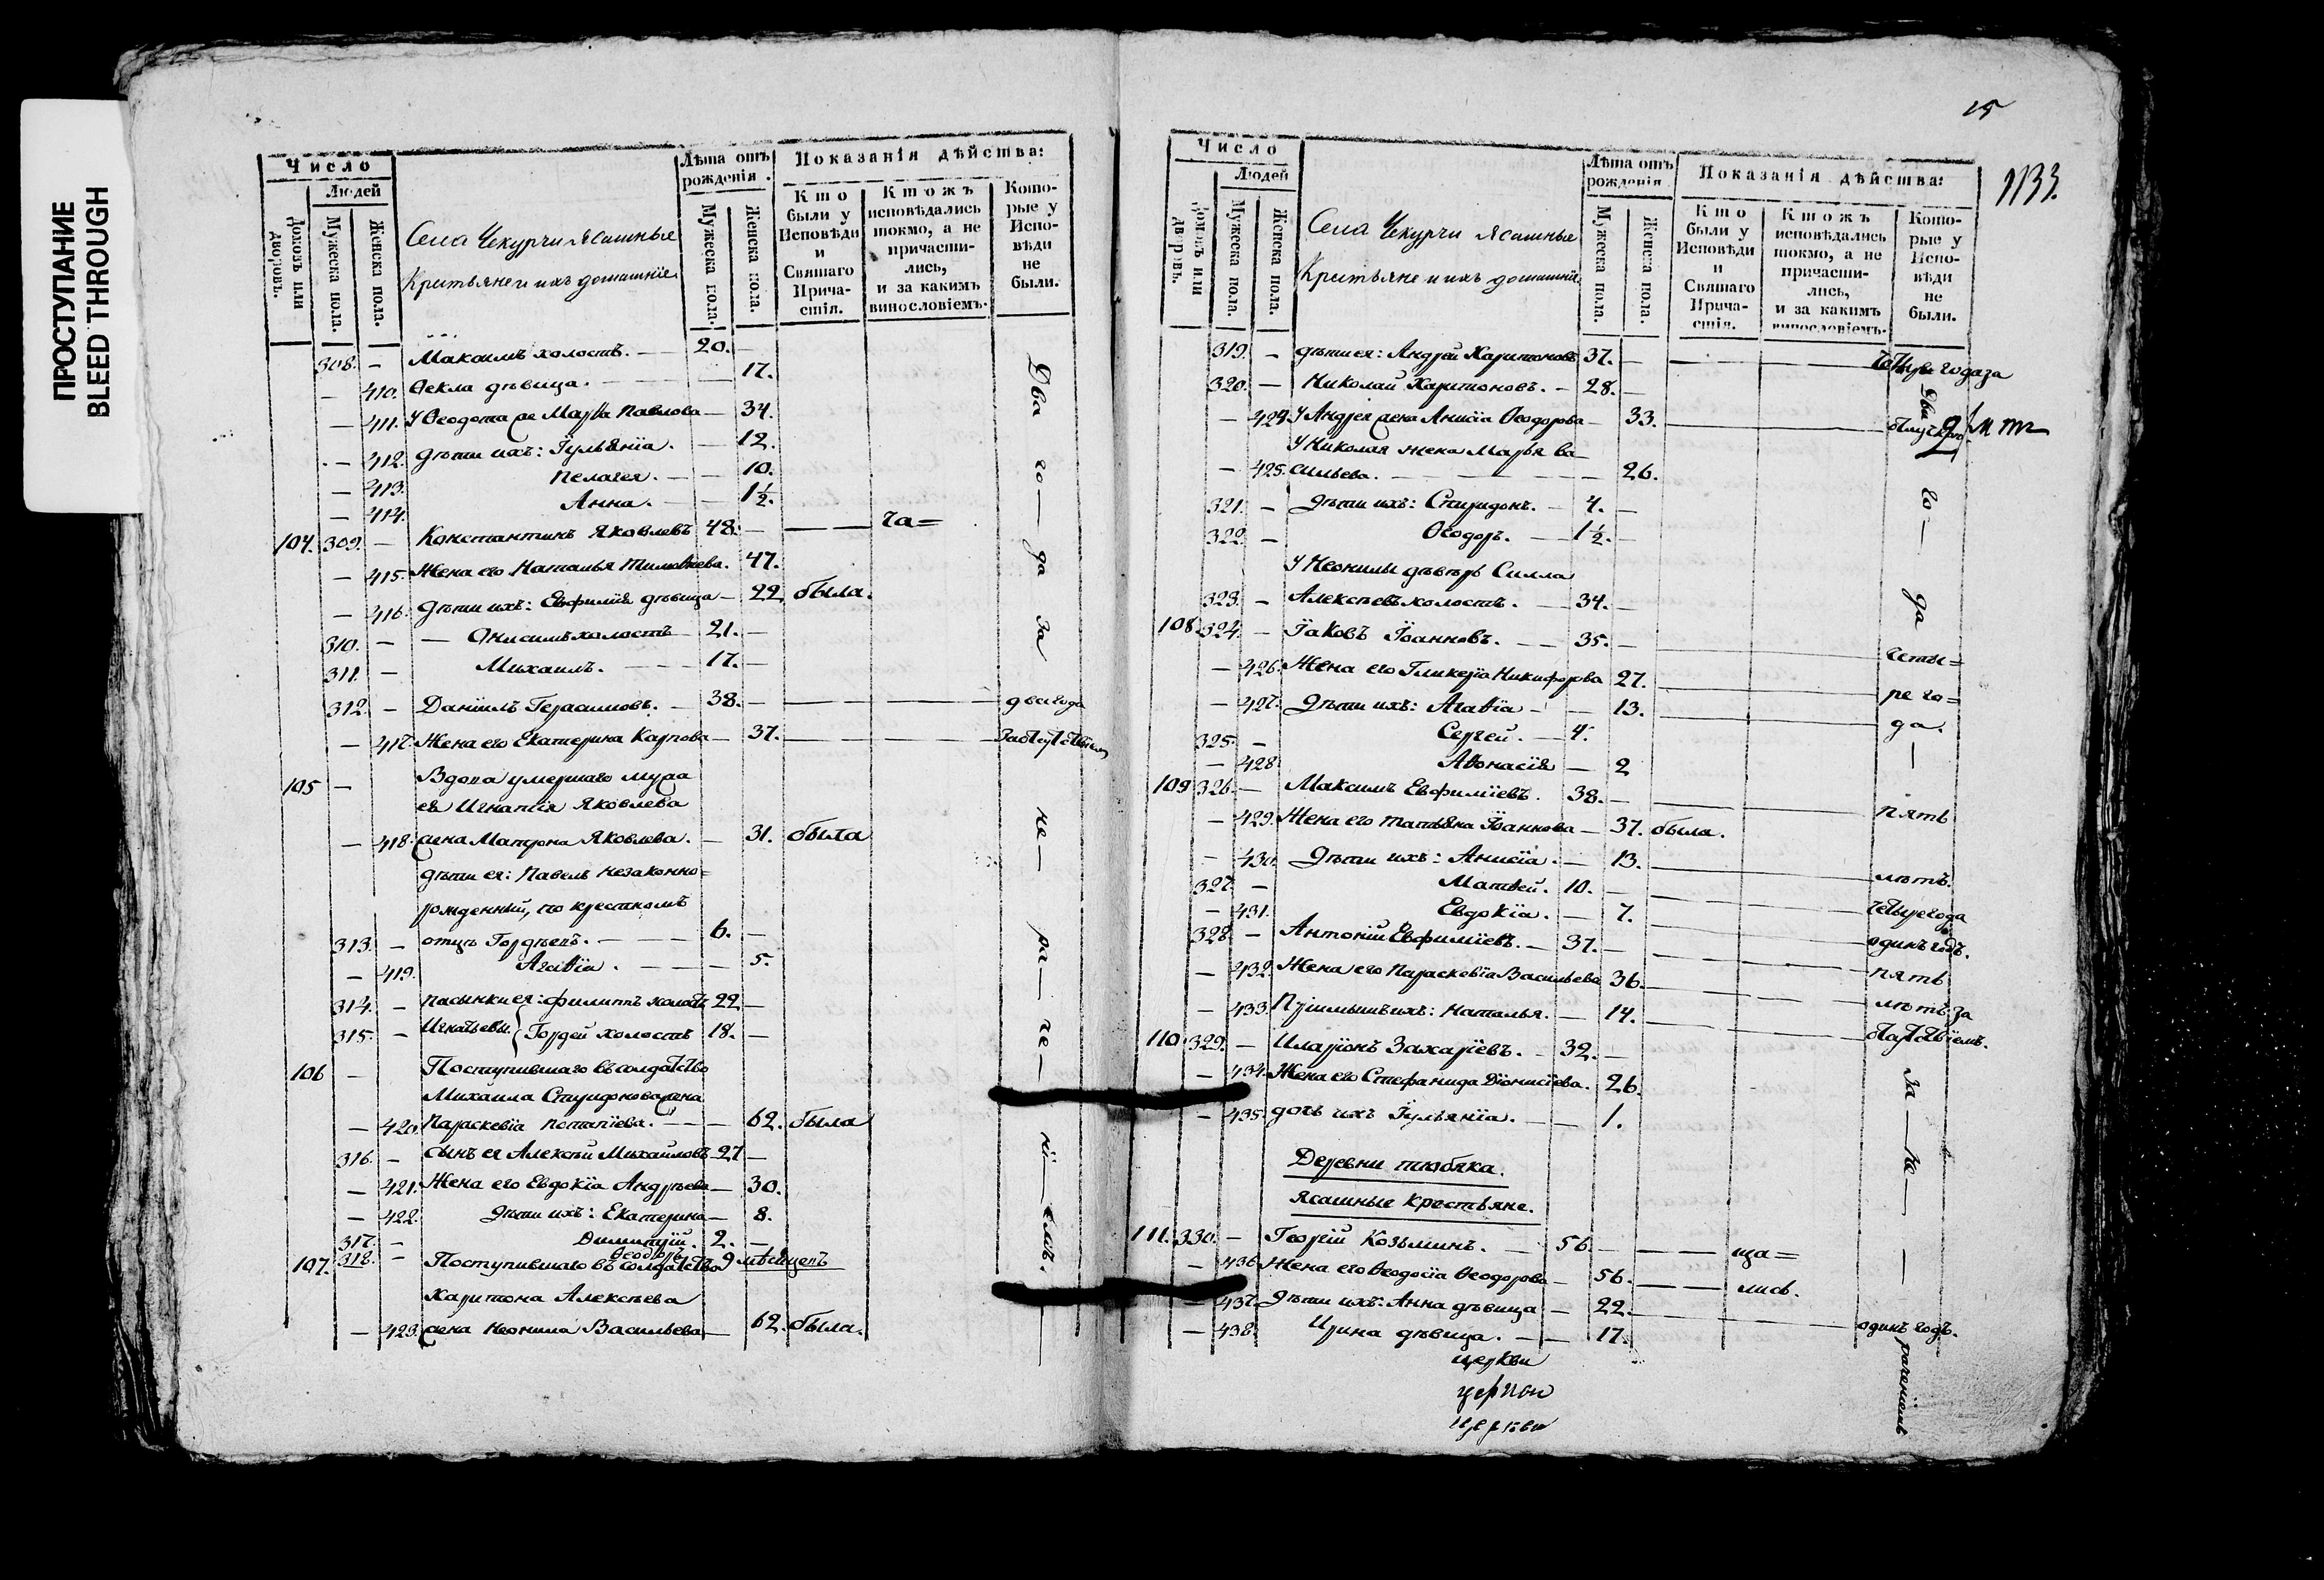 ПРОСТУПАНИЕ
BLEED THROUGH
Число
Людей
Домовъ или дворовъ.
Мужеска пола.
Женска пола.
Села Чекурчи Ясашные
Крестьяне и ихъ домашніе.
Лѣта отъ рожденія.
Мужеска пола.
Женска пола.
Показанія дѣйства:
Кто были у Исповѣди и Святаго Причастія.
Ктожъ исповѣдались токмо, а не причастились, и за какимъ винословіемъ.
Которые у Исповѣди не были.
308. — Максимъ холостъ. — 20. —
— 410. Ѳекла дѣвица. — 17.
— 411. У Ѳеодота Марѳа Павлова — 34.
— 412. Дѣти ихъ: Іульянія. — 12.
— 413. Пелагея. — 10.
— 414. Анна. — 1½.
104. 309. — Константинъ Яковлевъ 48. — — — ча=
— 415. Жена его Наталья Тимоѳеева. 47.
— 416. Дѣти ихъ: Евфимія дѣвица — 22. была.
310. — — Онисимъ холостъ — 21. —
311. — Михаилъ. — 17. —
312. — Даніилъ Герасимовъ. — 38. — — — два года
— 417. Жена его Екатерина Карпова — 37. — —
105 — Вдова умершаго мужа
ея Игнатія Яковлева
— 418. жена Матрона Яковлева. — 31. была
дѣти ея: Павелъ незаконно=
рожденный, по крестномъ
313. — отцѣ Гордѣевъ. — 6. —
— 419. Агаѳія. — 5.
314. — пасынки ея: Филиппъ холостъ 22 —
315. — Игнатьевы. Гордей холостъ 18. —
106 — Поступившаго въ солдатство
Михаила Спиридонова жена
— 420. Параскевіа Потапіева. — 62. была
316. — сынъ ея Алексѣй Михайловъ 27 —
— 421. Жена его Евдокіа Андрѣева — 30.
— 422. Дѣти ихъ: Екатерина — 8.
317. — Димитрій. 2. —
318. — Ѳеодоръ 9 мѣсяцевъ
107. Поступившаго въ солдатство
Харитона Алексѣева
— 423. жена Неонила Васильева — 62. была.
Два го — да за не — ра — че — ні — емъ.
15
1133.
Число
Людей
Домовъ или дворовъ.
Мужеска пола.
Женска пола.
Села Чекурчи Ясашные
Крестьяне и ихъ домашніе.
Лѣта отъ рожденія.
Мужеска пола.
Женска пола.
Показанія дѣйства:
Кто были у Исповѣди и Святаго Причастія.
Ктожъ исповѣдались токмо, а не причастились, и за какимъ винословіемъ.
Которые у Исповѣди не были.
319. — дѣти ея: Андрей Харитоновъ 37. — — — четыре года за
320. — Николай Харитоновъ. — 28. —
— 424. У Андрея жена Анисіа Ѳеодорова — 33. — —
У Николая жена Марья Ва—
— 425. сильева. — 26.
321. — Дѣти ихъ: Спиридонъ. — 4. —
322. — Ѳеодоръ. — 1½. —
У Неонилы дѣверь Силла
323. — Алексѣевъ холостъ. — 34. —
108. 324. — Іаковъ Іоанновъ. — 35. — — — четы=
— 426. Жена его Гликеріа Никифорова 27. — — ре го=
— 427. Дѣти ихъ: Агаѳіа — 13. — — да.
325. — Сергей. — 4.
— 428 Аѳонасія — 2
109 326. — Максимъ Евфиміевъ. 38. — — — пять
— 429. Жена его Татьяна Іоаннова — 37. была.
— 430. Дѣти ихъ: Анисіа. — 13. — — лѣтъ.
327. — Матвей. 10. — — — четыре года
— 431. Евдокіа. — 7. — — одинъ годъ.
328 — Антоній Евфиміевъ. — 37. — — — пять
— 432. Жена его Параскевіа Васильева 36. — — лѣтъ за
— 433. Пріимышъ ихъ: Наталья. — 14. — —
110 329. — Иларіонъ Захаріевъ. — 32. —
— 434. Жена его Стефанида Діонисіева. 26.
— 435. дочь ихъ Іульянія. — 1.
Деревни Тюбяка.
Ясашные крестьяне.
111. 330. — Георгій Козьминъ. — 56 — — — ща=
— 436 Жена его Ѳеодосіа Ѳеодорова — 56. — — лись.
— 437. Дѣти ихъ: Анна дѣвица — 22. — — одинъ годъ.
— 438. Ирина дѣвица. — 17.
Два го — да за — не — раченіемъ
церкви
церкви
церкви